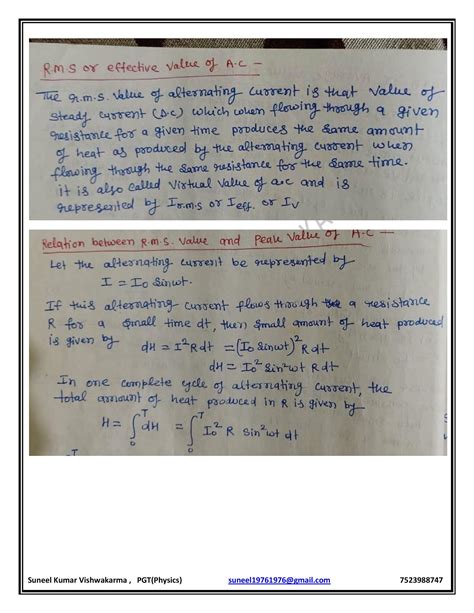 R.M.S or effective value of A.C -
The r.m.s. value of alternating current is that value of
steady current (D.C) which when flowing through a given
resistance for a given time produces the same amount
of heat as produced by the alternating current when
flowing through the same resistance for the same time.
it is also called virtual value of a.c and is
represented by Ir.m.s or Ieff. or Iv
Relation between R.M.S. value and Peak value of A.C -
Let the alternating current be represented by
I = I₀ sinωt.
If this alternating current flows through a resistance
R for a small time dt, then small amount of heat produced
is given by
dH = I²Rdt = (I₀ sinωt)² R dt
dH = I₀² sin²ωt R dt
In one complete cycle of alternating current, the
total amount of heat produced in R is given by
H = ∫₀ᵀ dH = ∫₀ᵀ I₀² R sin²ωt dt
Suneel Kumar Vishwakarma , PGT(Physics) suneel19761976@gmail.com 7523988747